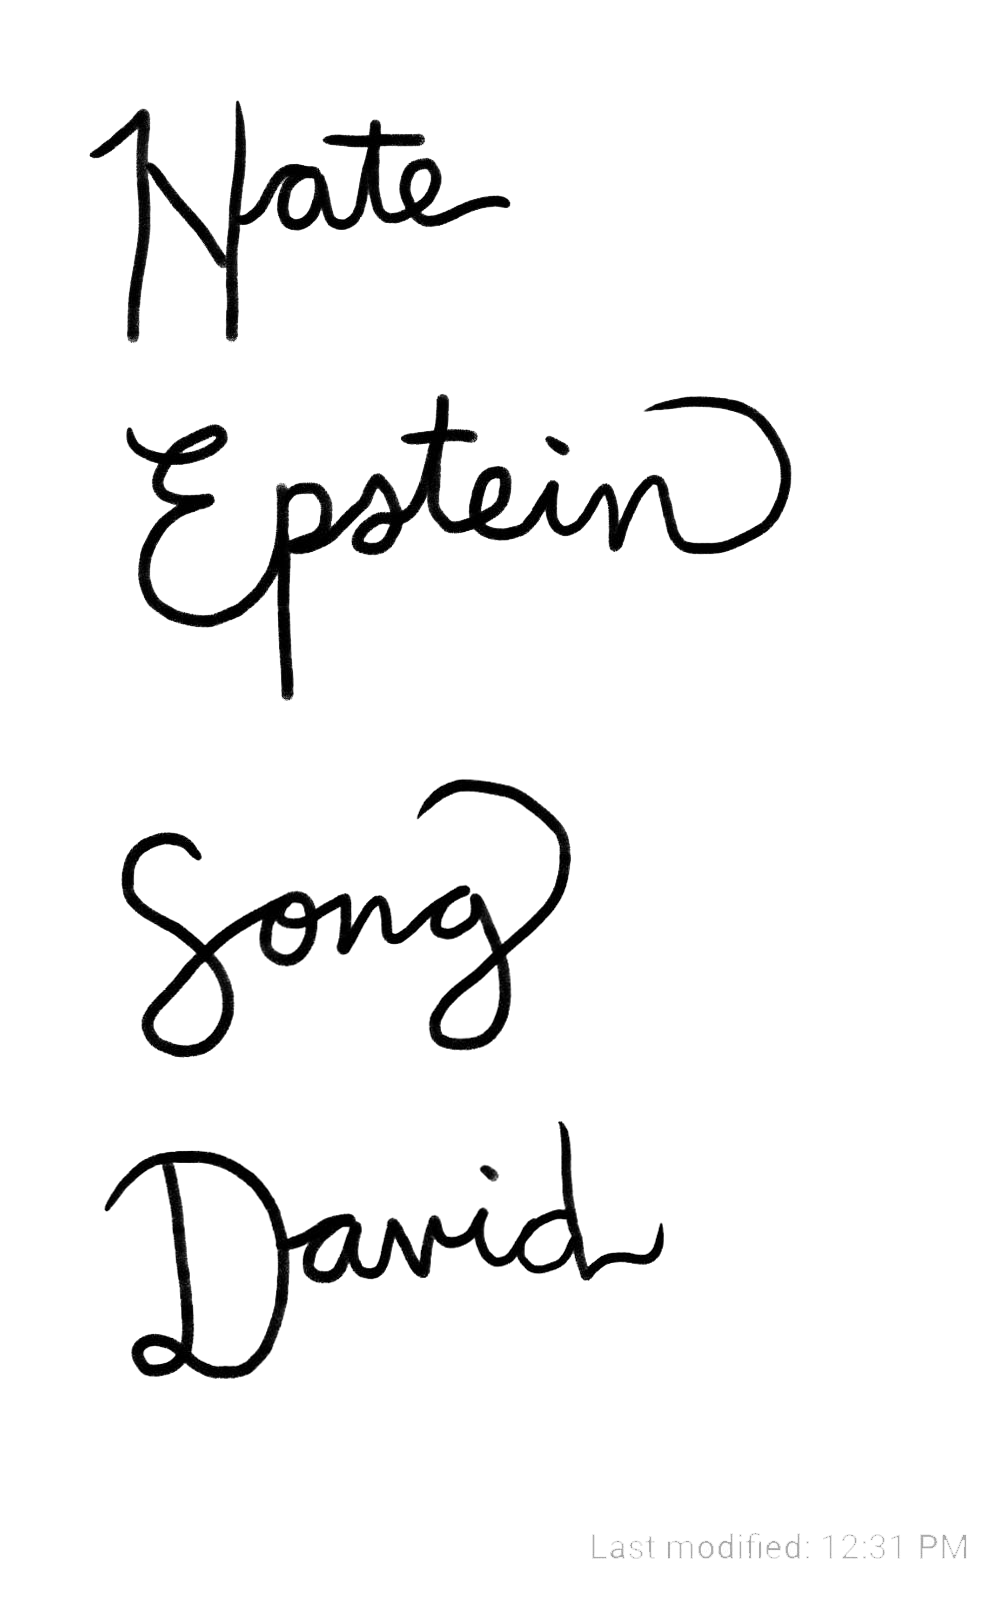 Nate
Epstein
Song
David
Last modified: 12:31 PM